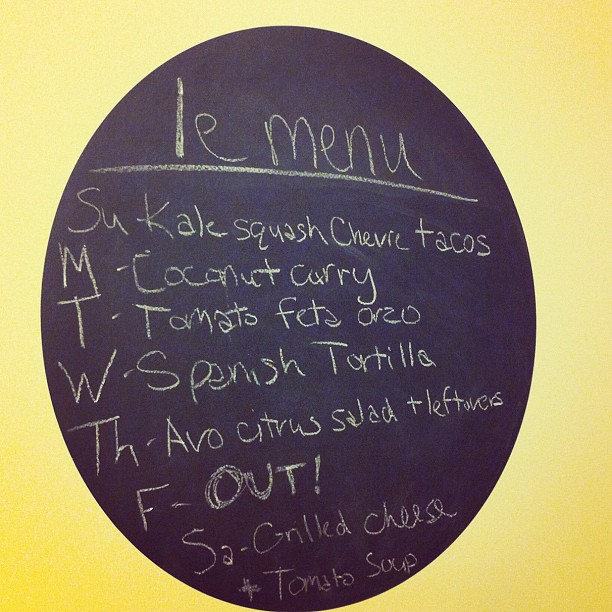 le menu
Su-Kale squash Chevre tacos
M-Coconut curry
T-Tomato feta orzo
W-Spanish Tortilla
Th-Avo citrus salad + leftovers
F-OUT!
Sa-Grilled cheese
+ Tomato Soup